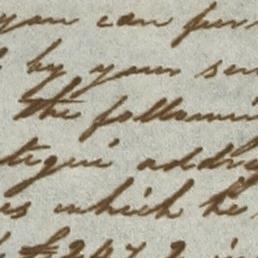 you can fur
by your ser
the followin
tegui addre
es which he
$247.2 in